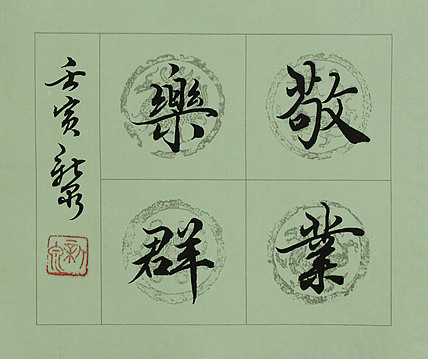 敬業
樂群
壬寅